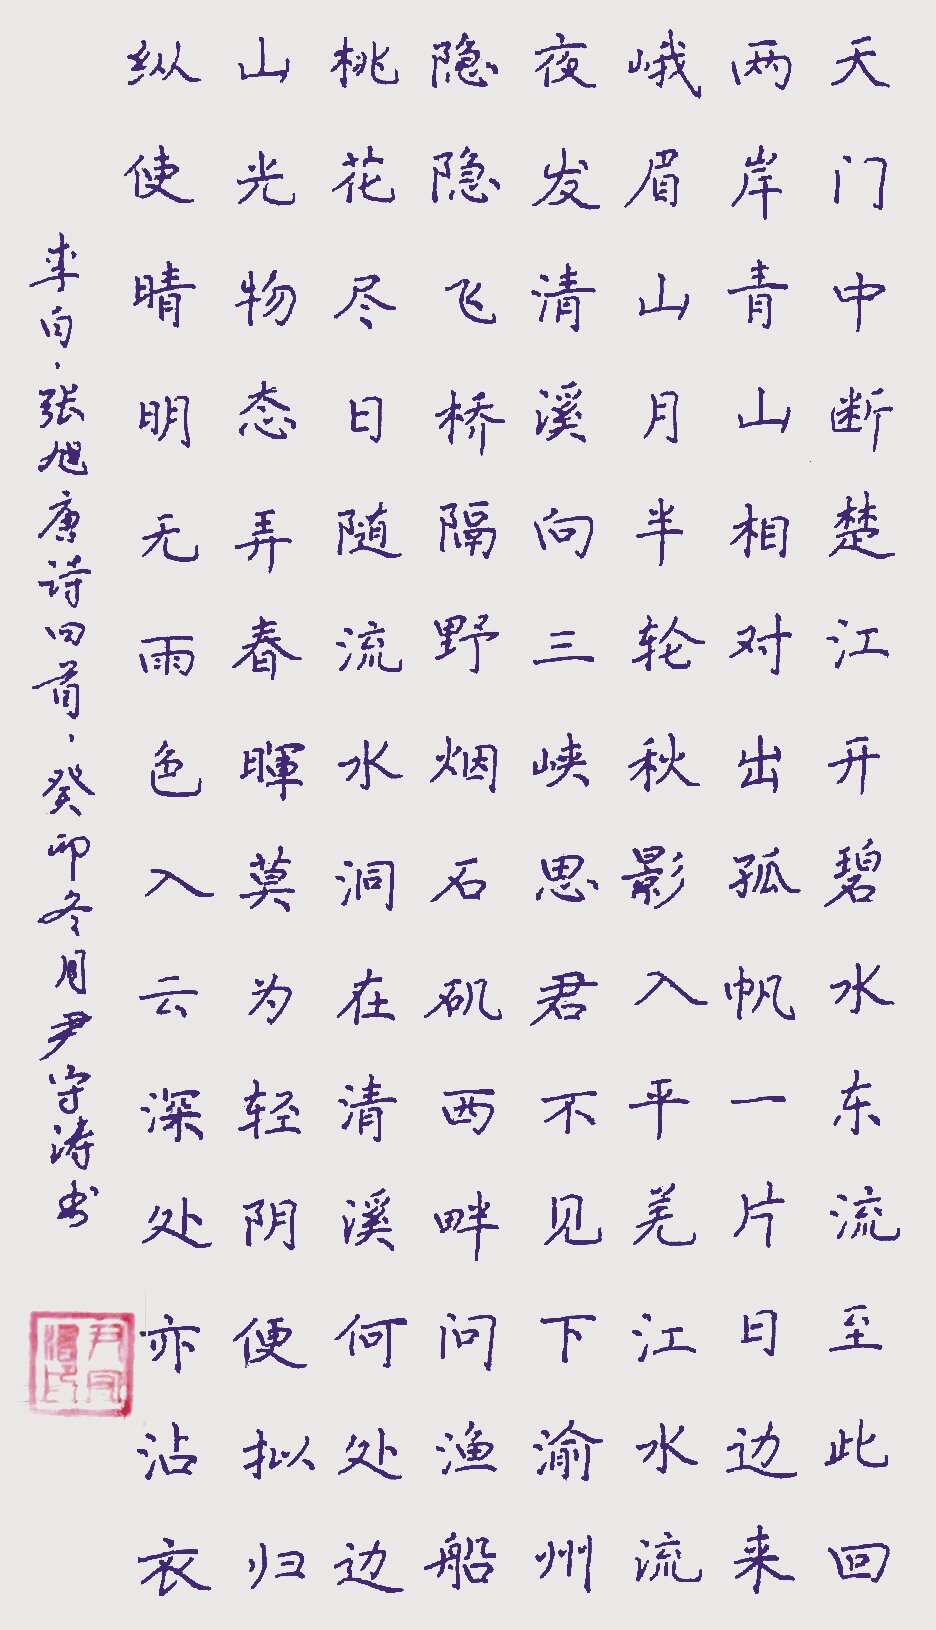 天门中断楚江开碧水东流至此回
两岸青山相对出孤帆一片日边来
峨眉山月半轮秋影入平羌江水流
夜发清溪向三峡思君不见下渝州
隐隐飞桥隔野烟石矶西畔问渔船
桃花尽日随流水洞在清溪何处边
山光物态弄春暉莫为轻阴便拟归
纵使晴明无雨色入云深处亦沾衣
李白、张旭唐诗四首、癸卯冬月尹守涛书